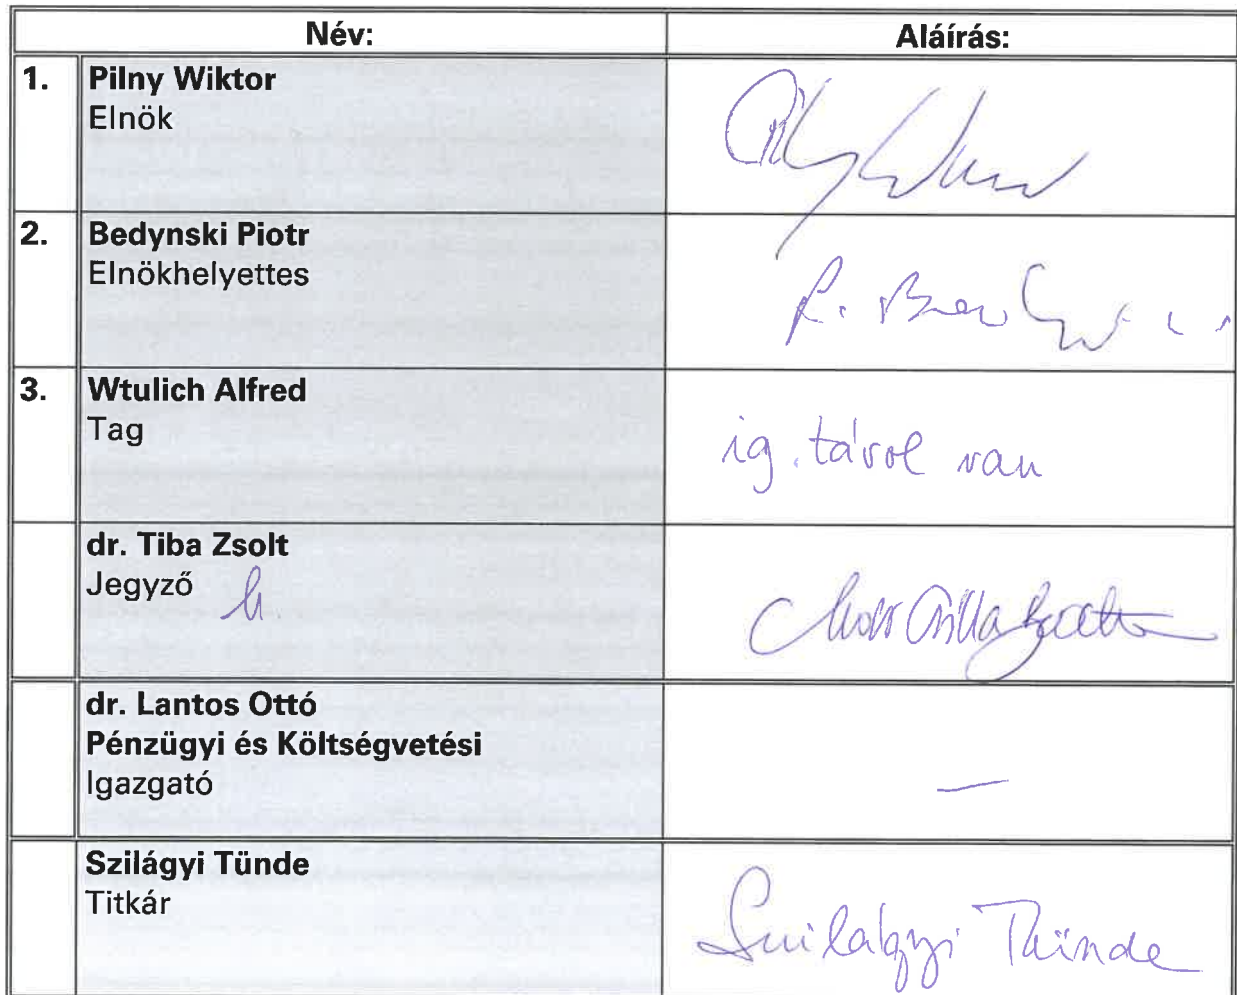 Név: Aláírás:
1. Pilny Wiktor
Elnök
2. Bedynski Piotr
Elnökhelyettes
3. Wtulich Alfred
Tag
ig. távol van
dr. Tiba Zsolt
Jegyző h
dr. Lantos Ottó
Pénzügyi és Költségvetési
Igazgató
—
Szilágyi Tünde
Titkár
Szilágyi Tünde